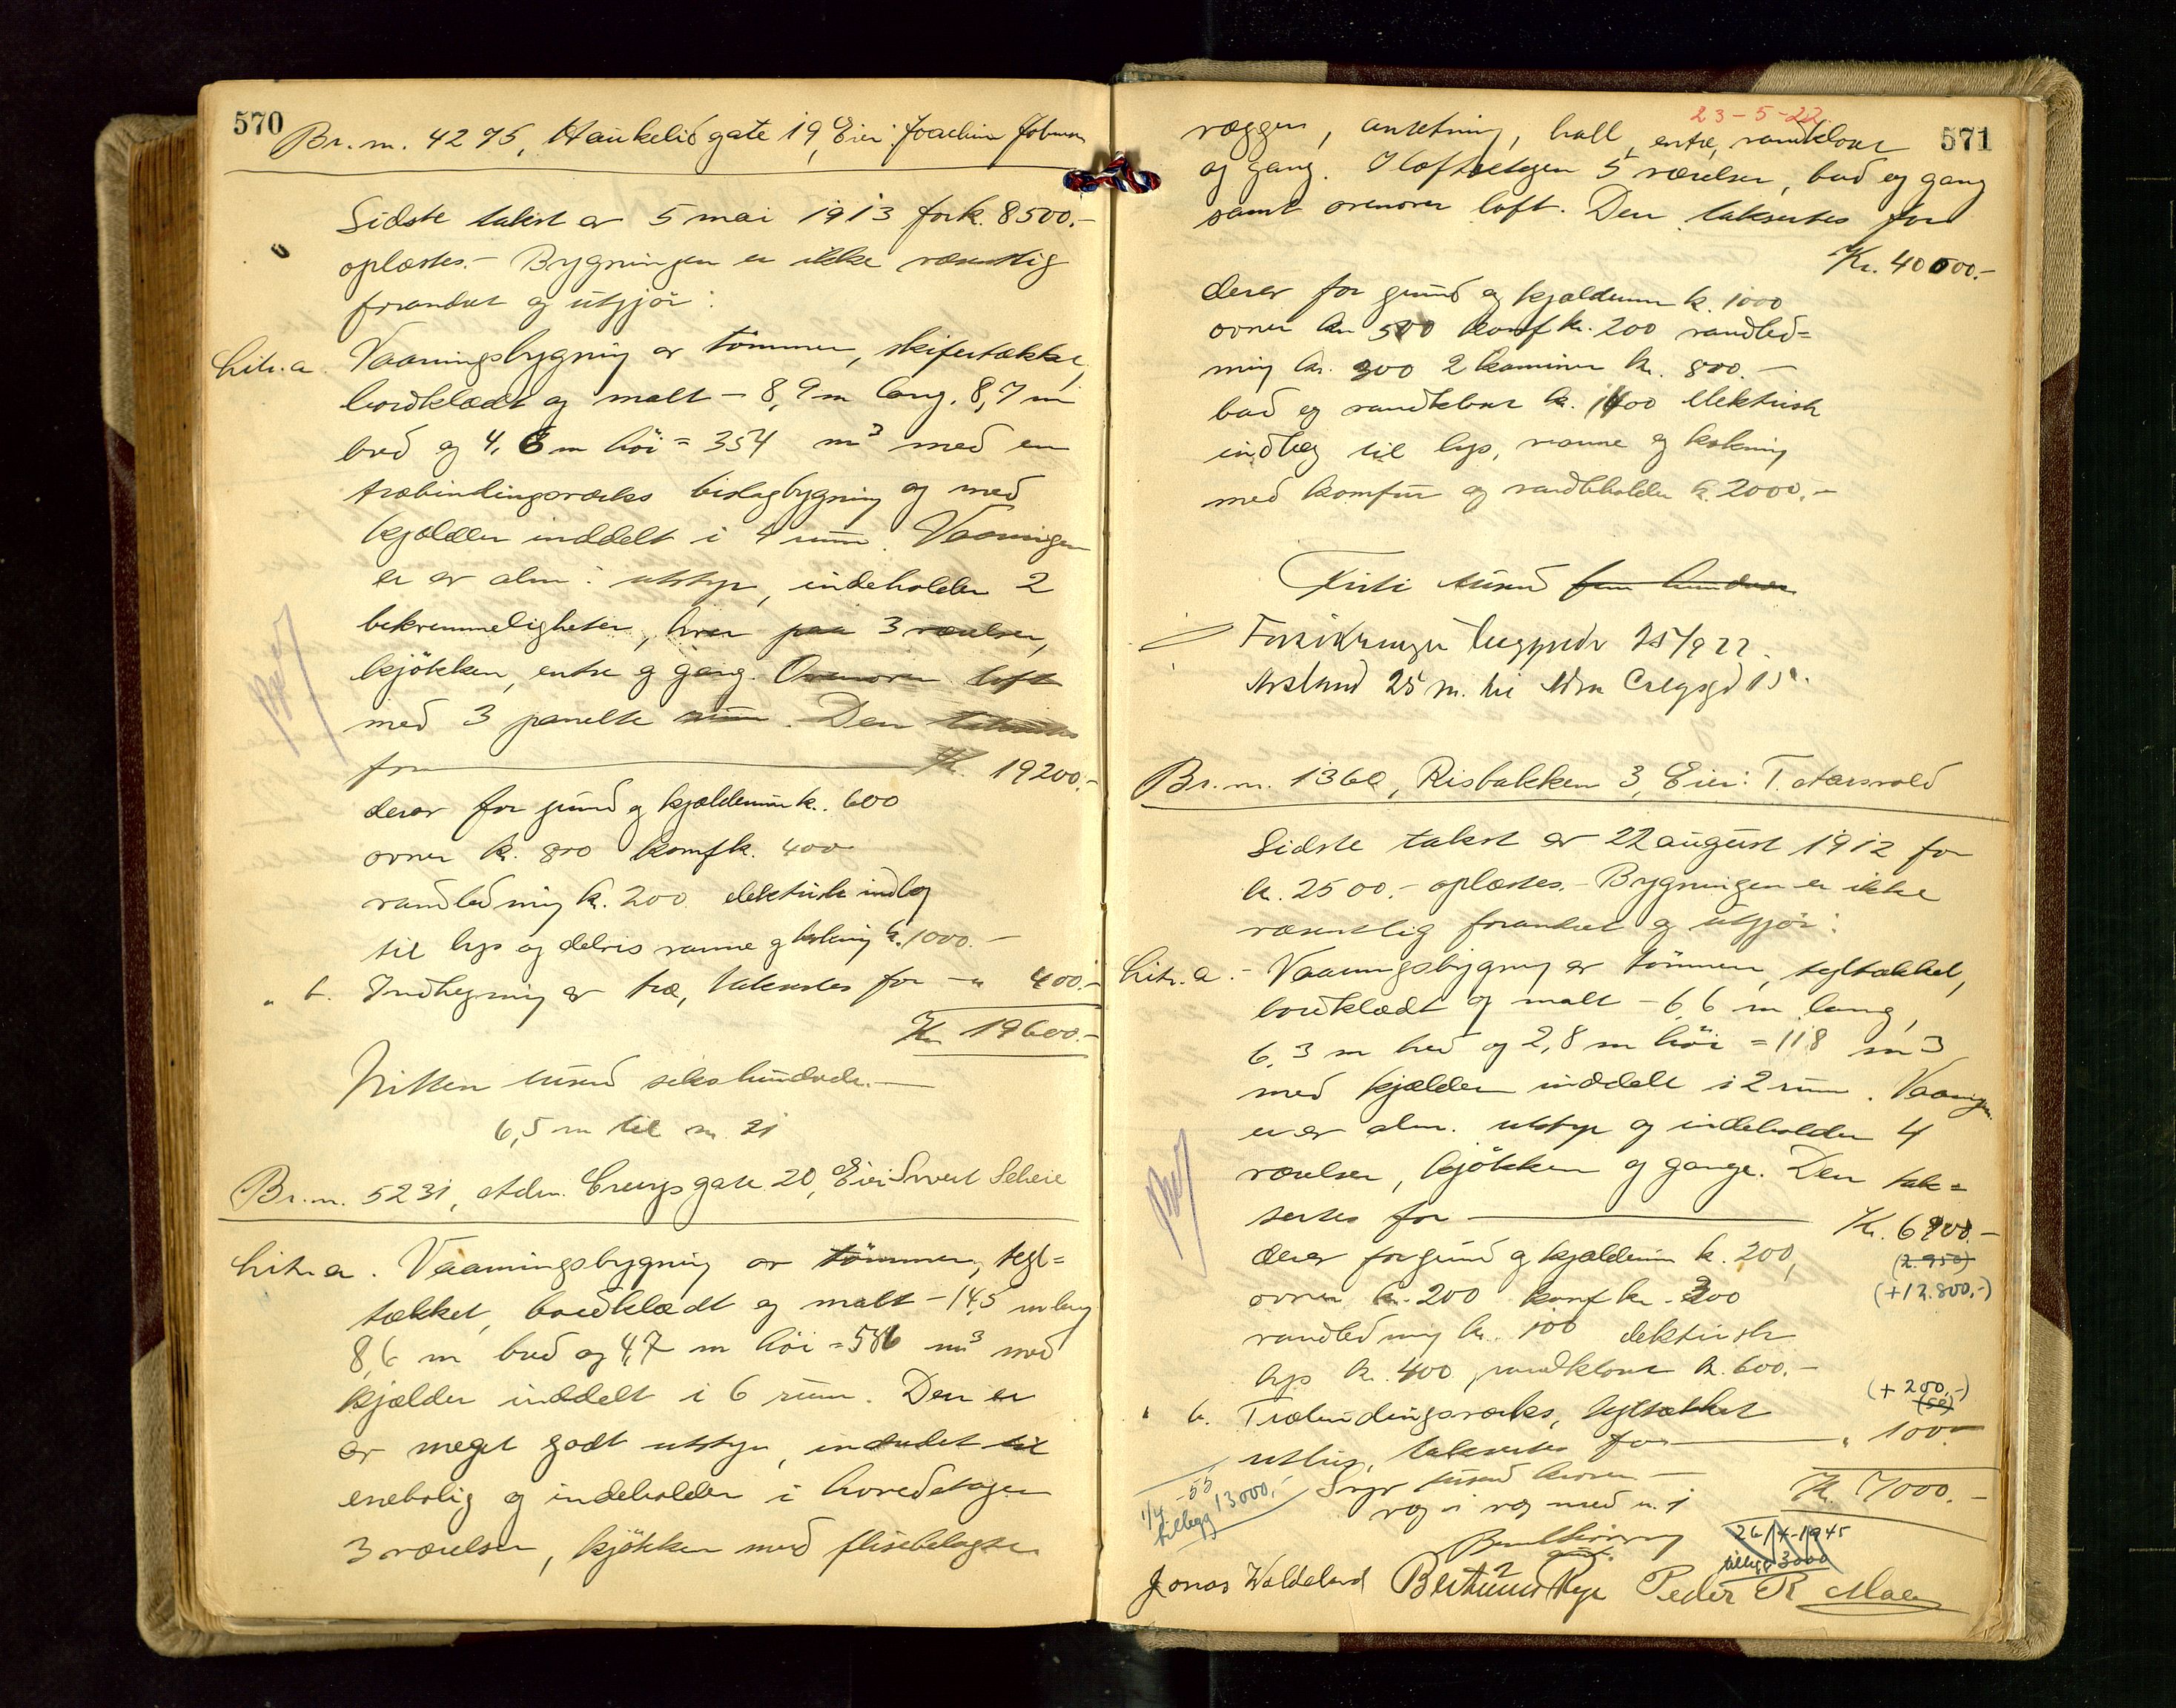 570
Br. nr. 4275, Haukelidgate 19, Eier: Joachim Johnsen
Sidste takst av 5 mai 1913 for k. 8500.-
oplæstes.- Bygningen er ikke væsentlig
forandret og utgjör:
Litr. a. Vaaningsbygning av tömmer, skifertækket,
bordklædt og malt - 8,9 m lang, 8,7 m
bred og 4,6 m höi = 354 m³ med en
træbindingsverks bislagbygning og med
kjælder inddelt i 4 rum. Vaaningen
er av alm. utstyr, indeholder 2
bekvemmeligheter, hver paa 3 værelser,
kjökken, entre og gang. Ovenover loft
med 3 panelte rum. Den takseres
for Kr. 19200.-
derav for grund og kjælderrum k. 600
ovner k. 800 komf k. 400
vandledning k. 200 elektrisk indlæg
til lys og delvis varme og kokning k. 1000.-
" b. Indhegning av træ, takseres for - " 400.-
Kr. 19600.-
Nitten tusend sekshundrede.-
6,5 m til nr. 21
Br. nr. 5231, Adm. Cruysgate 20, Eier Sivert Scheie
Litr. a. Vaaningsbygning av tömmer, tegl=
tækket, bordklædt og malt - 14,5 m lang
8,6 m bred og 4,7 m höi = 586 m³ med
kjælder inddelt i 6 rum. Den er
av meget godt utstyr, indredet til
enebolig og indeholder i hovedetagen
3 værelser, kjökken med flisebelagte
23-5-22.
571
vægger, anretning, hall, entre, vandkloset
og gang. I loftsetagen 5 værelser, bad og gang
samt ovenover loft. Den takseres for
Kr. 40000.-
derav for grund og kjælderrum k. 1000
ovner kr. 500 komf kr. 200 vandled=
ning kr. 300 2 kaminer kr. 800.-
bad og vandkloset k. 1400 elektrisk
indlæg til lys, varme og kokning
med komfur og vandbeholder k. 2000.-
Firti tusend fem hundrede
25/9 22.
Avstand 25 m. til Adm Cruysgd 15.
Br. nr. 1360, Risbakken 3, Eier: T. Aarsvold
Sidste takst av 22 august 1912 for
k. 2500.- oplæstes.- Bygningen er ikke
væsentlig forandret og utgjör:
Litr. a. - Vaaningsbygning av tömmer, tegltækket,
bordklædt og malt - 6,6 m lang,
6,3 m bred og 2,8 m höi = 118 m3
med kjælder inddelt i 2 rum. Vaaningen
er av alm. utstyr og indeholder 4
værelser, kjökken og gange. Den tak=
seres for Kr. 6900.-
(2.950)
derav for grund og kjælderrum k. 200,
(+12.800.-)
ovner k. 200 komf kr. 300
vandledning kr. 100 elektrisk
lys kr. 400, vandkloset k. 600.-
(+200.-)
(50)
" b. Træbindingsverks, tegltækket
uthus, takseres for " 100.-
Syv tusend kroner - Kr. 7000.-
væg i væg med nr. 1
1/4 -53
tillegg 13000,-
26/4-1945
tillegg 3000
Jonas Waldeland Berthinius Rege Peder R Maele